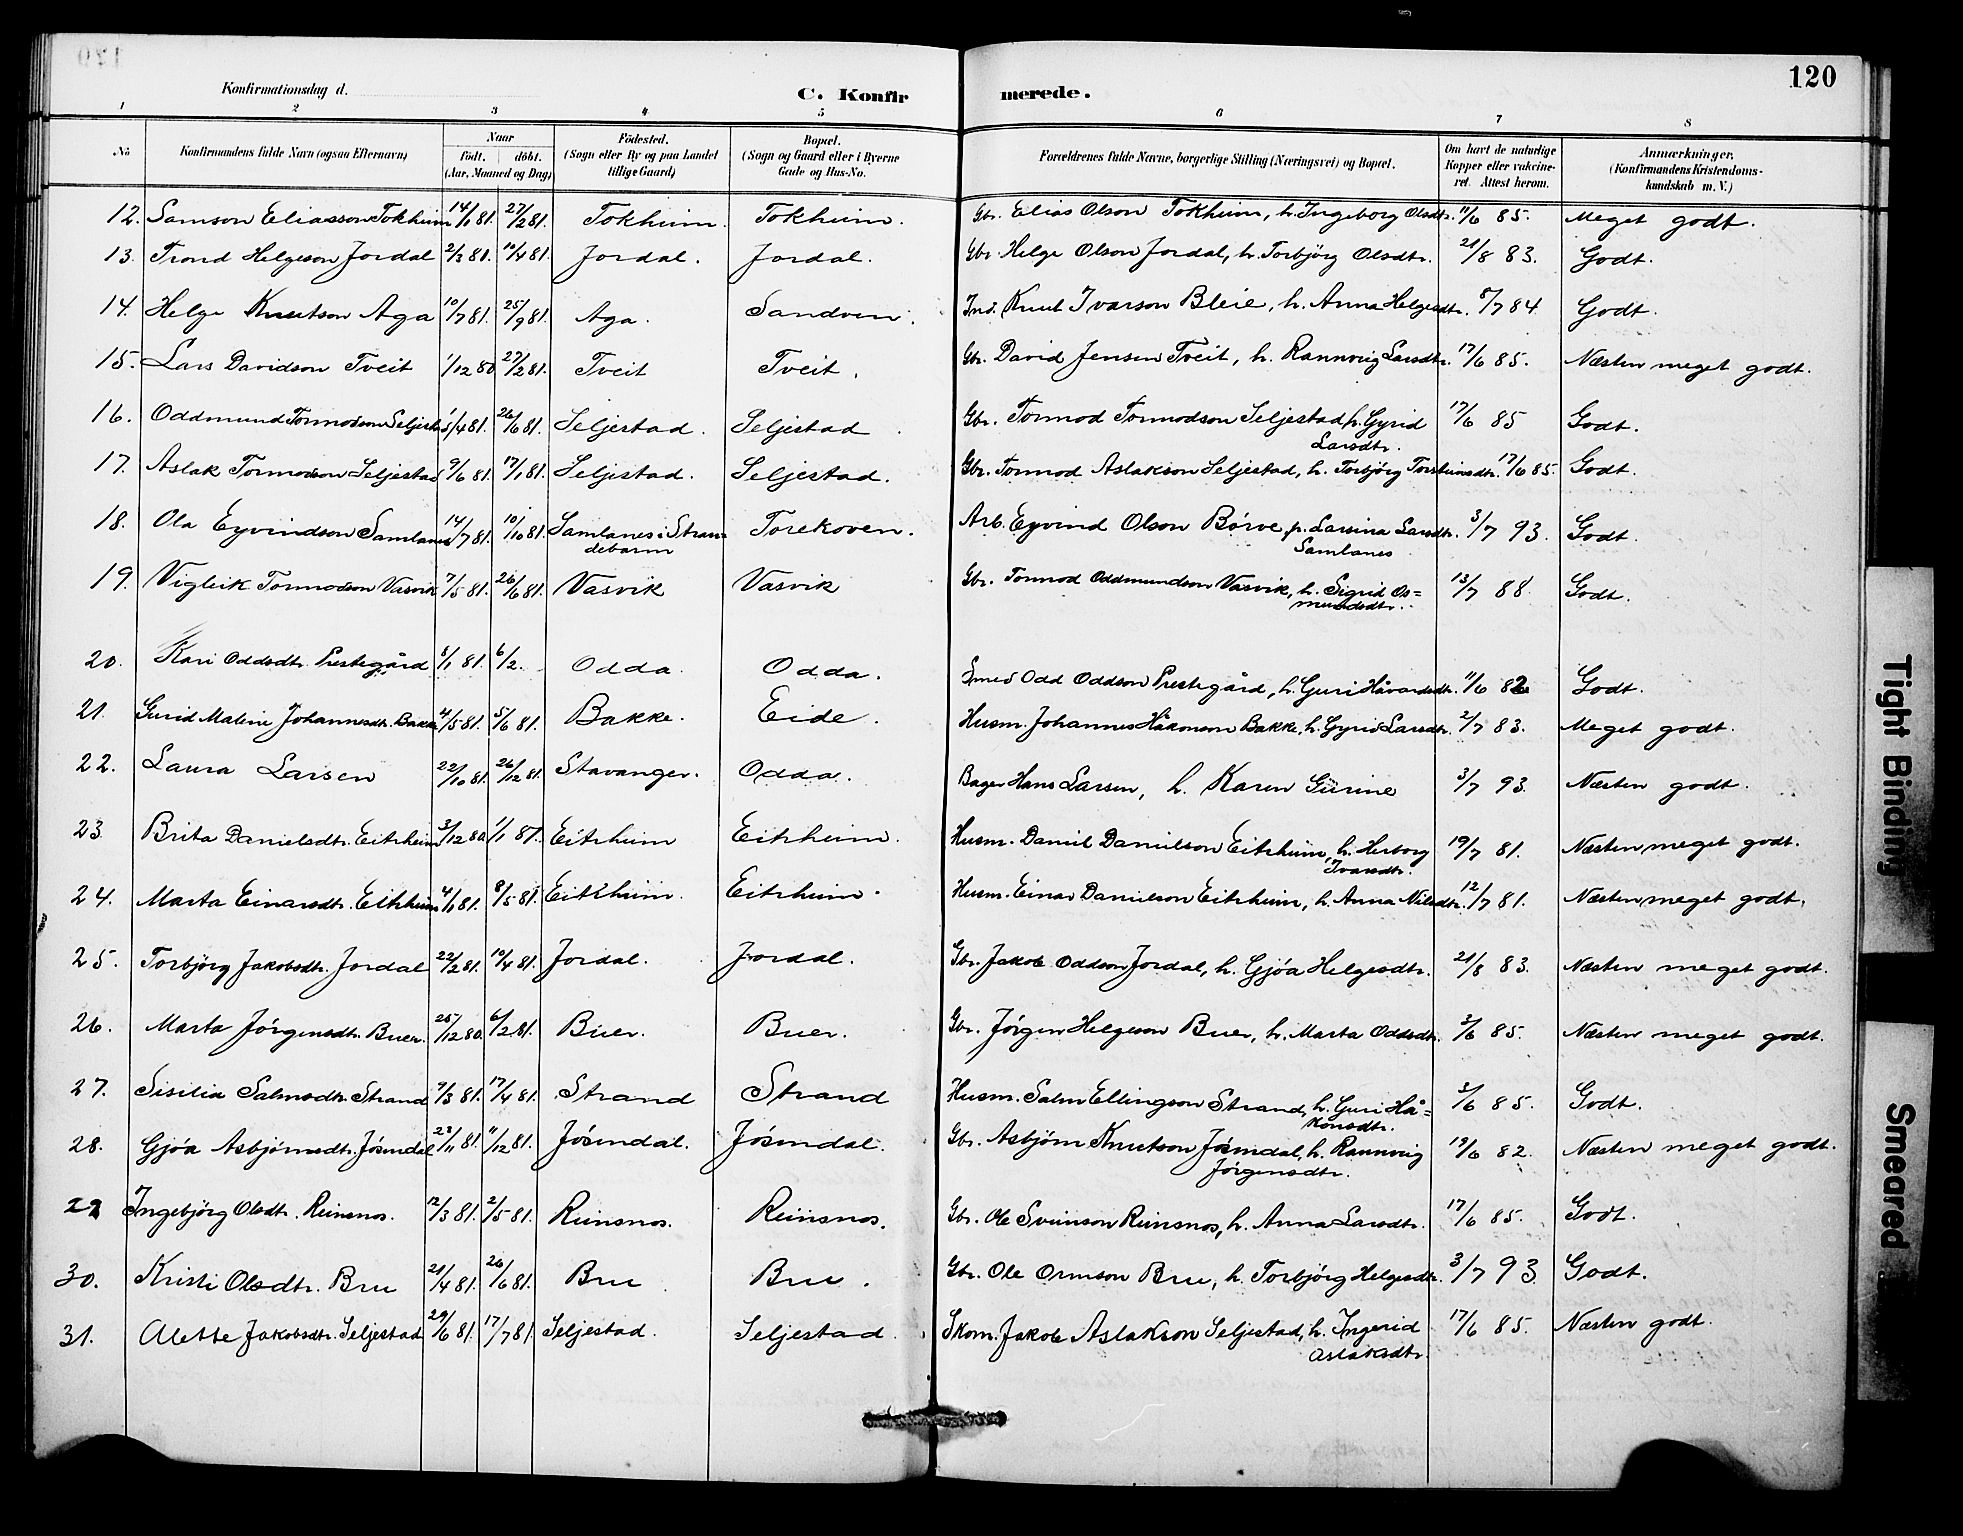 120
Konfirmationsdag d.
C. Konfirmerede.
1 2 3 4 5 6 7 8
No
Konfirmandens fulde Navn (ogsaa Efternavn)
Naar
födt. döbt.
(Aar, Maaned og Dag)
Födested.
(Sogn eller By og paa Landet
tillige Gaard)
Bopæl.
(Sogn og Gaard eller i Byerne
Gade og Hus-No.
Forældrenes fulde Navne, borgerlige Stilling (Næringsvei) og Bopæl.
Om havt de naturlige
Kopper eller vakcine-
ret. Attest herom.
Anmærkninger.
(Konfirmandens Kristendoms-
kundskab m. V.)
12. Samson Eliasson Tokheim 14/1 81. 27/2 81. Tokheim. Tokheim. Gbr. Elias Olson Tokheim, h. Ingeborg Olsdtr. 11/6 85. Meget godt.
13. Trond Helgeson Jordal 2/2 81. 10/4 81. Jordal. Jordal. Gbr. Helge Olson Jordal, h. Torbjörg Olsdtr. 21/8 83. Godt.
14. Helge Knutson Aga 10/7 81. 25/9 81. Aga. Sandven. Ind. Knut Ivarson Bleie, h. Anna Helgesdtr. 8/7 84. Godt.
15. Lars Davidson Tveit 1/12 80 27/2 81. Tveit Tveit. Gbr. David Jensen Tveit, h. Rannveig Larsdtr. 17/6 85. Næsten meget godt.
16. Oddmund Tormodson Seljestad /4 81. 26/6 81. Seljestad. Seljestad. Gbr. Tormod Tormodson Seljestad, h. Gyrid
Larsdtr. 17/6 85 Godt.
17. Aslak Tormodson Seljestad 9/6 81. 17/1 81. Seljestad. Seljestad. Gbr. Tormod Aslakson Seljestad, h. Torbjörg Torsteinsdtr. 17/6 85. Godt.
18. Ola Eyvindson Samlanes 14/7 81. 10/10 81. Samlanes i Stran-
debarm Torekoven. Arb. Eyvind Olson Börve, p. Larsina Larsdtr.
Samlanes 3/7 93. Godt.
19. Vigleik Tormodson Vasvik 7/5 81. 26/6 81. Vasvik Vasvik Gbr. Tormod Oddmundson Vasvik, h. Sigrid Os=
mundsdtr. 13/7 88. Godt.
20. Kari Oddsdtr. Prestegård 8/1 81. 6/2. Odda. Odda. Smed Odd Oddson Prestegård, h. Guri Håvardsdtr. 11/6 82 Godt.
21. Gurid Maline Johannesdtr. Bakke 4/5 81. 5/6 81. Bakke. Eide. Husm. Johannes Håkonson Bakke, h. Gyrid Larsdtr. 2/7 83. Meget godt.
22. Laura Larsen 22/10 81. 26/12 81. Stavanger. Odda. Bager Hans Larsen, h. Karen Gurine 3/7 93. Næsten godt.
23. Brita Danielsdtr. Eitrheim 3/12 80. 1/1 81. Eitrheim Eitrheim. Husm. Daniel Danielson Eitrheim, h. Herborg
Ivarsdtr. 19/7 81. Næsten meget godt.
24. Marta Einarsdtr. Eitrheim 4/1 81. 8/5 81. Eitrheim. Eitrheim. Husm. Einar Danielson Eitrheim, h. Anna Nilsdtr. 12/7 81. Næsten meget godt.
25. Torbjörg Jakobsdtr. Jordal 22/2 81. 10/4 81. Jordal. Jordal. Gbr. Jakob Oddson Jordal, h. Gjöa Helgesdtr. 21/8 83. Næsten meget godt.
26. Marta Jörgensdtr. Buer. 25/12 80. 6/2 81. Buer. Buer. Gbr. Jörgen Helgeson Buer, h. Marta Oddsdtr. 3/6 85. Næsten meget godt.
27. Sisilia Salmodtr. Strand 7/3 81. 17/4 81. Strand Strand Husm. Salm Ellingson Strand, h. Guri Hå=
konsdtr. 3/6 85. Godt.
28. Gjöa Asbjörnsdtr. Jösendal 23/11 81. 11/12 81. Jösendal. Jösendal. Gbr. Asbjörn Knutson Jösendal, h. Rannveig
Jörgensdtr. 19/6 82. Næsten meget godt.
29 Ingebjörg Olsdtr. Reinsnos. 12/3 81. 2/5 81. Reinsnos. Reinsnos. Gbr. Ole Sveinson Reinsnos, h. Anna Larsdtr. 17/6 85. Godt.
30. Kristi Olsdtr. Bru 21/4 81. 26/6 81. Bru Bru. Gbr. Ole Ormson Bru, h. Torbjörg Helgesdtr. 3/7 93. Godt.
31. Alette Jakobsdtr. Seljestad 29/6 81. 17/7 81. Seljestad. Seljestad. Skom. Jakob Aslakson Seljestad, h. Ingerid
Aslaksdtr. 17/6 85. Næsten godt.
Tight Binding
Smeared